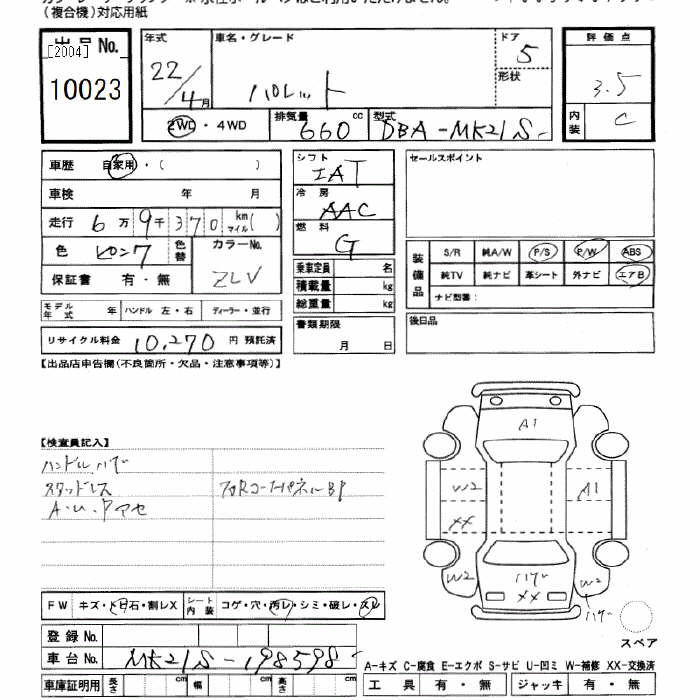 (複合機)対応用紙
出品No.
[2004]
10023
年式
22/4月
車名・グレード
パレット
ドア
5
形状
評価点
3.5
内装
C
2WD・4WD
排気量
660cc
型式
DBA-MK21S-
車歴 自家用・( )
車検 年 月
走行 6万9千370km マイル( )
色 ピンク 色替
カラーNo.
ZLV
保証書 有・無
モデル年式 年 ハンドル 左・右 ディーラー・並行
リサイクル料金 10,270円 預託済
シフト
IAT
冷房
AAC
燃料
G
乗車定員 名
積載量 kg
総重量 kg
書類期限
月 日
セールスポイント
装備品
S/R 純A/W P/S P/W ABS
純TV 純ナビ 革シート 外ナビ エアB
ナビ型番:
後日品
【出品店申告欄(不良箇所・欠品・注意事項等)】
【検査員記入】
ハンドルハゲ
スタッドレス
A・U・キマセ
FW キズ・トビ石・割レX
シート内装 コゲ・穴・汚レ・シミ・破レ・スレ
登録No.
車台No. MK21S-198598-
車庫証明用 長さ cm 幅 cm 高さ cm
A1
W2
XX
A1
W2
ハゲ
XX
W2
ハゲ
スペア
A-キズ C-腐食 E-エクボ S-サビ U-凹ミ W-補修 XX-交換済
工具 有・無 ジャッキ 有・無